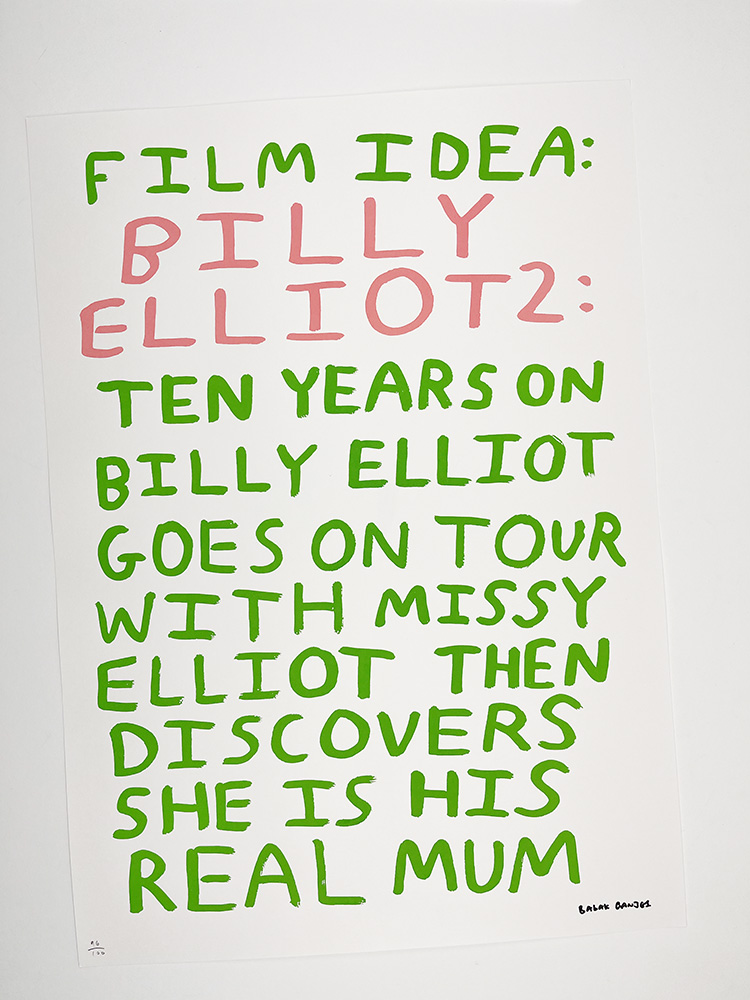 FILM IDEA:
BILLY
ELLIOT 2:
TEN YEARS ON
BILLY ELLIOT
GOES ON TOUR
WITH MISSY
ELLIOT THEN
DISCOVERS
SHE IS HIS
REAL MUM
BABAK GANJEI